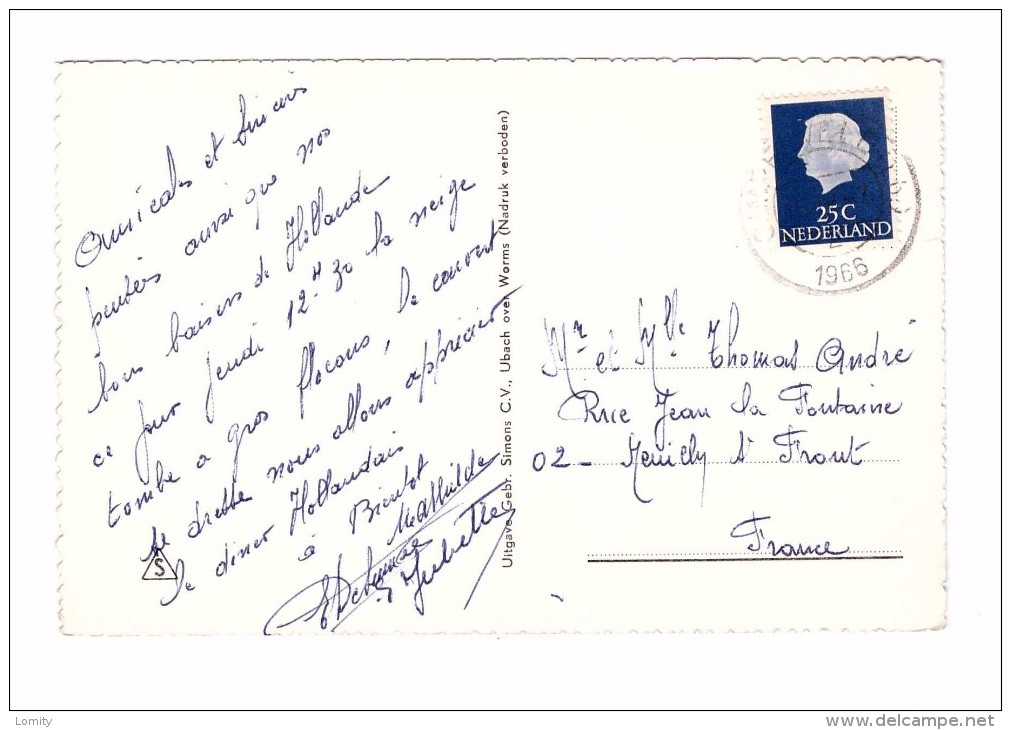 Amicales et sincères
pensées ainsi que nos
bons baisers de Hollande
ce jour jeudi 12H30 la neige
tombe a gros flocons, le couvert
se dresse nous allons apprécier
le diner Hollandais
à Bientot
Mathilde
S
Uitgave Gebr. Simons C.V., Ubach over Worms (Nadruk verboden)
25C
NEDERLAND
1966
Mr et Mlle Thomas André
Rue Jean la Fontaine
02 - Neuilly St Front
France
Lomity
www.delcampe.net